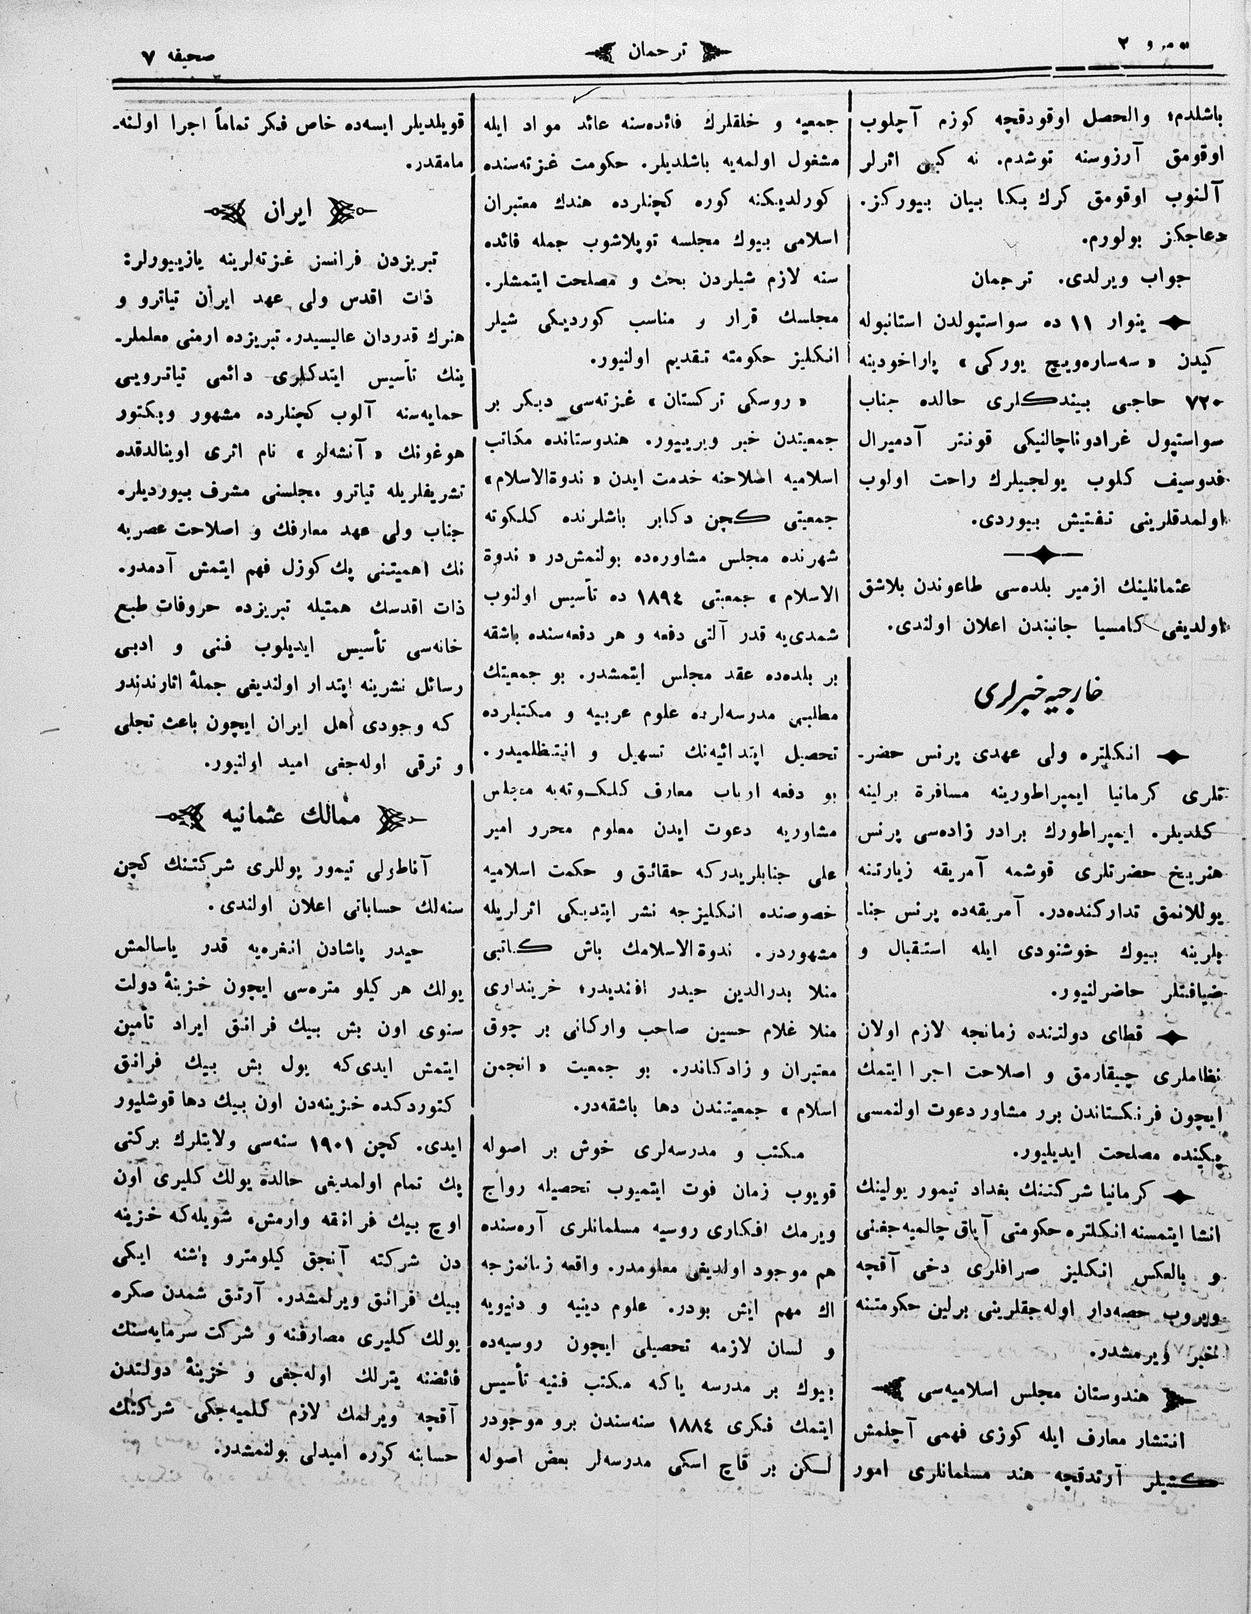 نومرو ٢
ترجمان
صحيفه ٧
باشلدم؛ والحصل اوقودقچه كوزم آچلوب
اوقومق آرزوسنه توشدم. نه كبى اثرلر
آلنوب اوقومق كرك بكا بيان بيوركز.
دعاجكز بولورم.
جواب ويرلدى. ترجمان
ينوار ١١ ده سواستپولدن استانبوله
كيدن «سه‌ساره‌ويچ يوركى» پاراخودينه
٧٢٠ حاجى بيندكلرى حالده جناب
سواستپول غرادوناچالنيكى قونتر آدميرال
فدوسيف كلوب يولجيلرك راحت اولوب
اولمدقلرينى تفتيش بيوردى.
عثمانلينك ازمير بلده‌سى طاعوندن بلاشق
اولديغى كامسيا جانبندن اعلان اولندى.
خارجيه خبرلرى
انكلتره ولى عهدى پرنس حضر-
تلرى كرمانيا ايمپراطورينه مسافرة برلينه
كلديلر. ايمپراطورك برادر زاده‌سى پرنس
هنريخ حضرتلرى قوشمه آمريقه زيارتنه
يوللانمق تداركنده‌در. آمريقه‌ده پرنس جنا-
بلرينه بيوك خوشنودى ايله استقبال و
ضيافتلر حاضرلنيور.
قطاى دولتنده زمانجه لازم اولان
نظاملرى چيقارمق و اصلاحت اجرا ايتمك
ايچون فرنكستاندن برر مشاور دعوت اولنمسى
پكينده مصلحت ايديليور.
كرمانيا شركتنك بغداد تيمور يولينك
انشا ايتمسنه انكلتره حكومتى آياق چالميه‌جغنى
و بالعكس انكليز صرافلرى دخى آقچه
ويروب حصه‌دار اوله‌جقلرينى برلين حكومتنه
خبر ويرمشدر.
هندوستان مجلس اسلاميه‌سى
انتشار معارف ايله كوزى فهمى آچلمش
كشيلر آرتدقچه هند مسلمانلرى امور
جمعيه و خلقلرك فائده‌سنه عائد مواد ايله
مشغول اولمه‌يه باشلديلر. حكومت غزته‌سنده
كورلديكنه كوره كچنلرده هندك معتبران
اسلامى بيوك مجلسه توپلاشوب جمله فائده
سنه لازم شيلردن بحث و مصلحت ايتمشلر.
مجلسك قرار و مناسب كورديكى شيلر
انكليز حكومته تقديم اولنيور.
«روسكى تركستان» غزته‌سى ديكر بر
جمعيتدن خبر ويرييور. هندوستانده مكاتب
اسلاميه اصلاحنه خدمت ايدن «ندوة الاسلام»
جمعيتى كچن دكابر باشلرنده كلكوته
شهرنده مجلس مشاوره‌ده بولنمش‌در «ندوة
الاسلام» جمعيتى ١٨٩٤ ده تأسيس اولنوب
شمدى‌يه قدر آلتى دفعه و هر دفعه‌سنده باشقه
بر بلده‌ده عقد مجلس ايتمشدر. بو جمعيتك
مطلبى مدرسه‌لرده علوم عربيه و مكتبلرده
تحصيل ابتدائيه‌نك تسهيل و انتظلميدر.
بو دفعه ارباب معارف كلكوته‌يه مجلس
مشاوريه دعوت ايدن معلوم محرر امير
على جنابلريدركه حقائق و حكمت اسلاميه
خصوصنده انكليزجه نشر ايتديكى اثرلريله
مشهوردر. ندوة الاسلامك باش كاتبى
منلا بدرالدين حيدر افنديدر؛ خرينداری
منلا غلام حسين صاحب واركانى بر چوق
معتبران و زادكاندر. بو جمعيت «انجمن
اسلام» جمعيتندن دها باشقه‌در.
مكتب و مدرسه‌لرى خوش بر اصوله
قويوب زمان فوت ايتميوب تحصيله رواج
ويرمك افكارى روسيه مسلمانلرى آره‌سنده
هم موجود اولديغى معلومدر. واقعه زمانمزجه
اك مهم ايش بودر. علوم دينيه و دنيويه
و لسان لازمه تحصيلى ايچون روسيه‌ده
بيوك بر مدرسه ياكه مكتب فنيه تأسيس
ايتمك فكرى ١٨٨٤ سنه‌سندن برو موجودر
لكن بر قاچ اسكى مدرسه‌لر بعض اصوله
قويلديلر ايسه‌ده خاص فكر تماماً اجرا اولنه-
مامقدر.
ايران
تبريزدن فرانسز غزته‌لرينه يازييورلر:
ذات اقدس ولى عهد ايران تياترو و
هنرك قدردان عاليسيدر. تبريزده ارمنى معلملر-
ينك تأسيس ايتدكلرى دائمى تياترويى
حمايه‌سنه آلوب كچنلرده مشهور ويكتور
هوغونك «آنشه‌لو» نام اثرى اوينالدقده
تشريفلريله تياترو مجلسنى مشرف بيورديلر.
جناب ولى عهد معارفك و اصلاحت عصريه
نك اهميتنى پك كوزل فهم ايتمش آدمدر.
ذات اقدسك همتيله تبريزده حروفات طبع
خانه‌سى تأسيس ايديلوب فنى و ادبى
رسائل نشرينه ابتدار اولنديغى جملۀ اثارندندر
كه وجودى اهل ايران ايچون باعث تجلى
و ترقى اوله‌جغى اميد اولنيور.
ممالك عثمانيه
آناطولى تيمور يوللرى شركتنك كچن
سنه‌لك حساباتى اعلان اولندى.
حيدر پاشادن انغره‌يه قدر ياسالمش
يولك هر كيلو متره‌سى ايچون خزينۀ دولت
سنوى اون بش بيك فرانق ايراد تأمين
ايتمش ايدى‌كه يول بش بيك فرانق
كتوردكده خزينه‌دن اون بيك دها قوشليور
ايدى. كچن ١٩٠١ سنه‌سى ولايتلرك بركتى
پك تمام اولمديغى حالده يولك كليرى اون
اوچ بيك فرانقه وارمش، شويله‌كه خزينه
دن شركته آنجق كيلومترو باشنه ايكى
بيك فرانق ويرلمشدر. آرتق شمدن صكره
يولك كليرى مصارفنه و شركت سرمايه‌سنك
فائضنه يترلك اوله‌جغى و خزينۀ دولتدن
آقچه ويرلمك لازم كلميه‌جكى شركتك
حسابنه كوره اميدلى بولنمشدر.